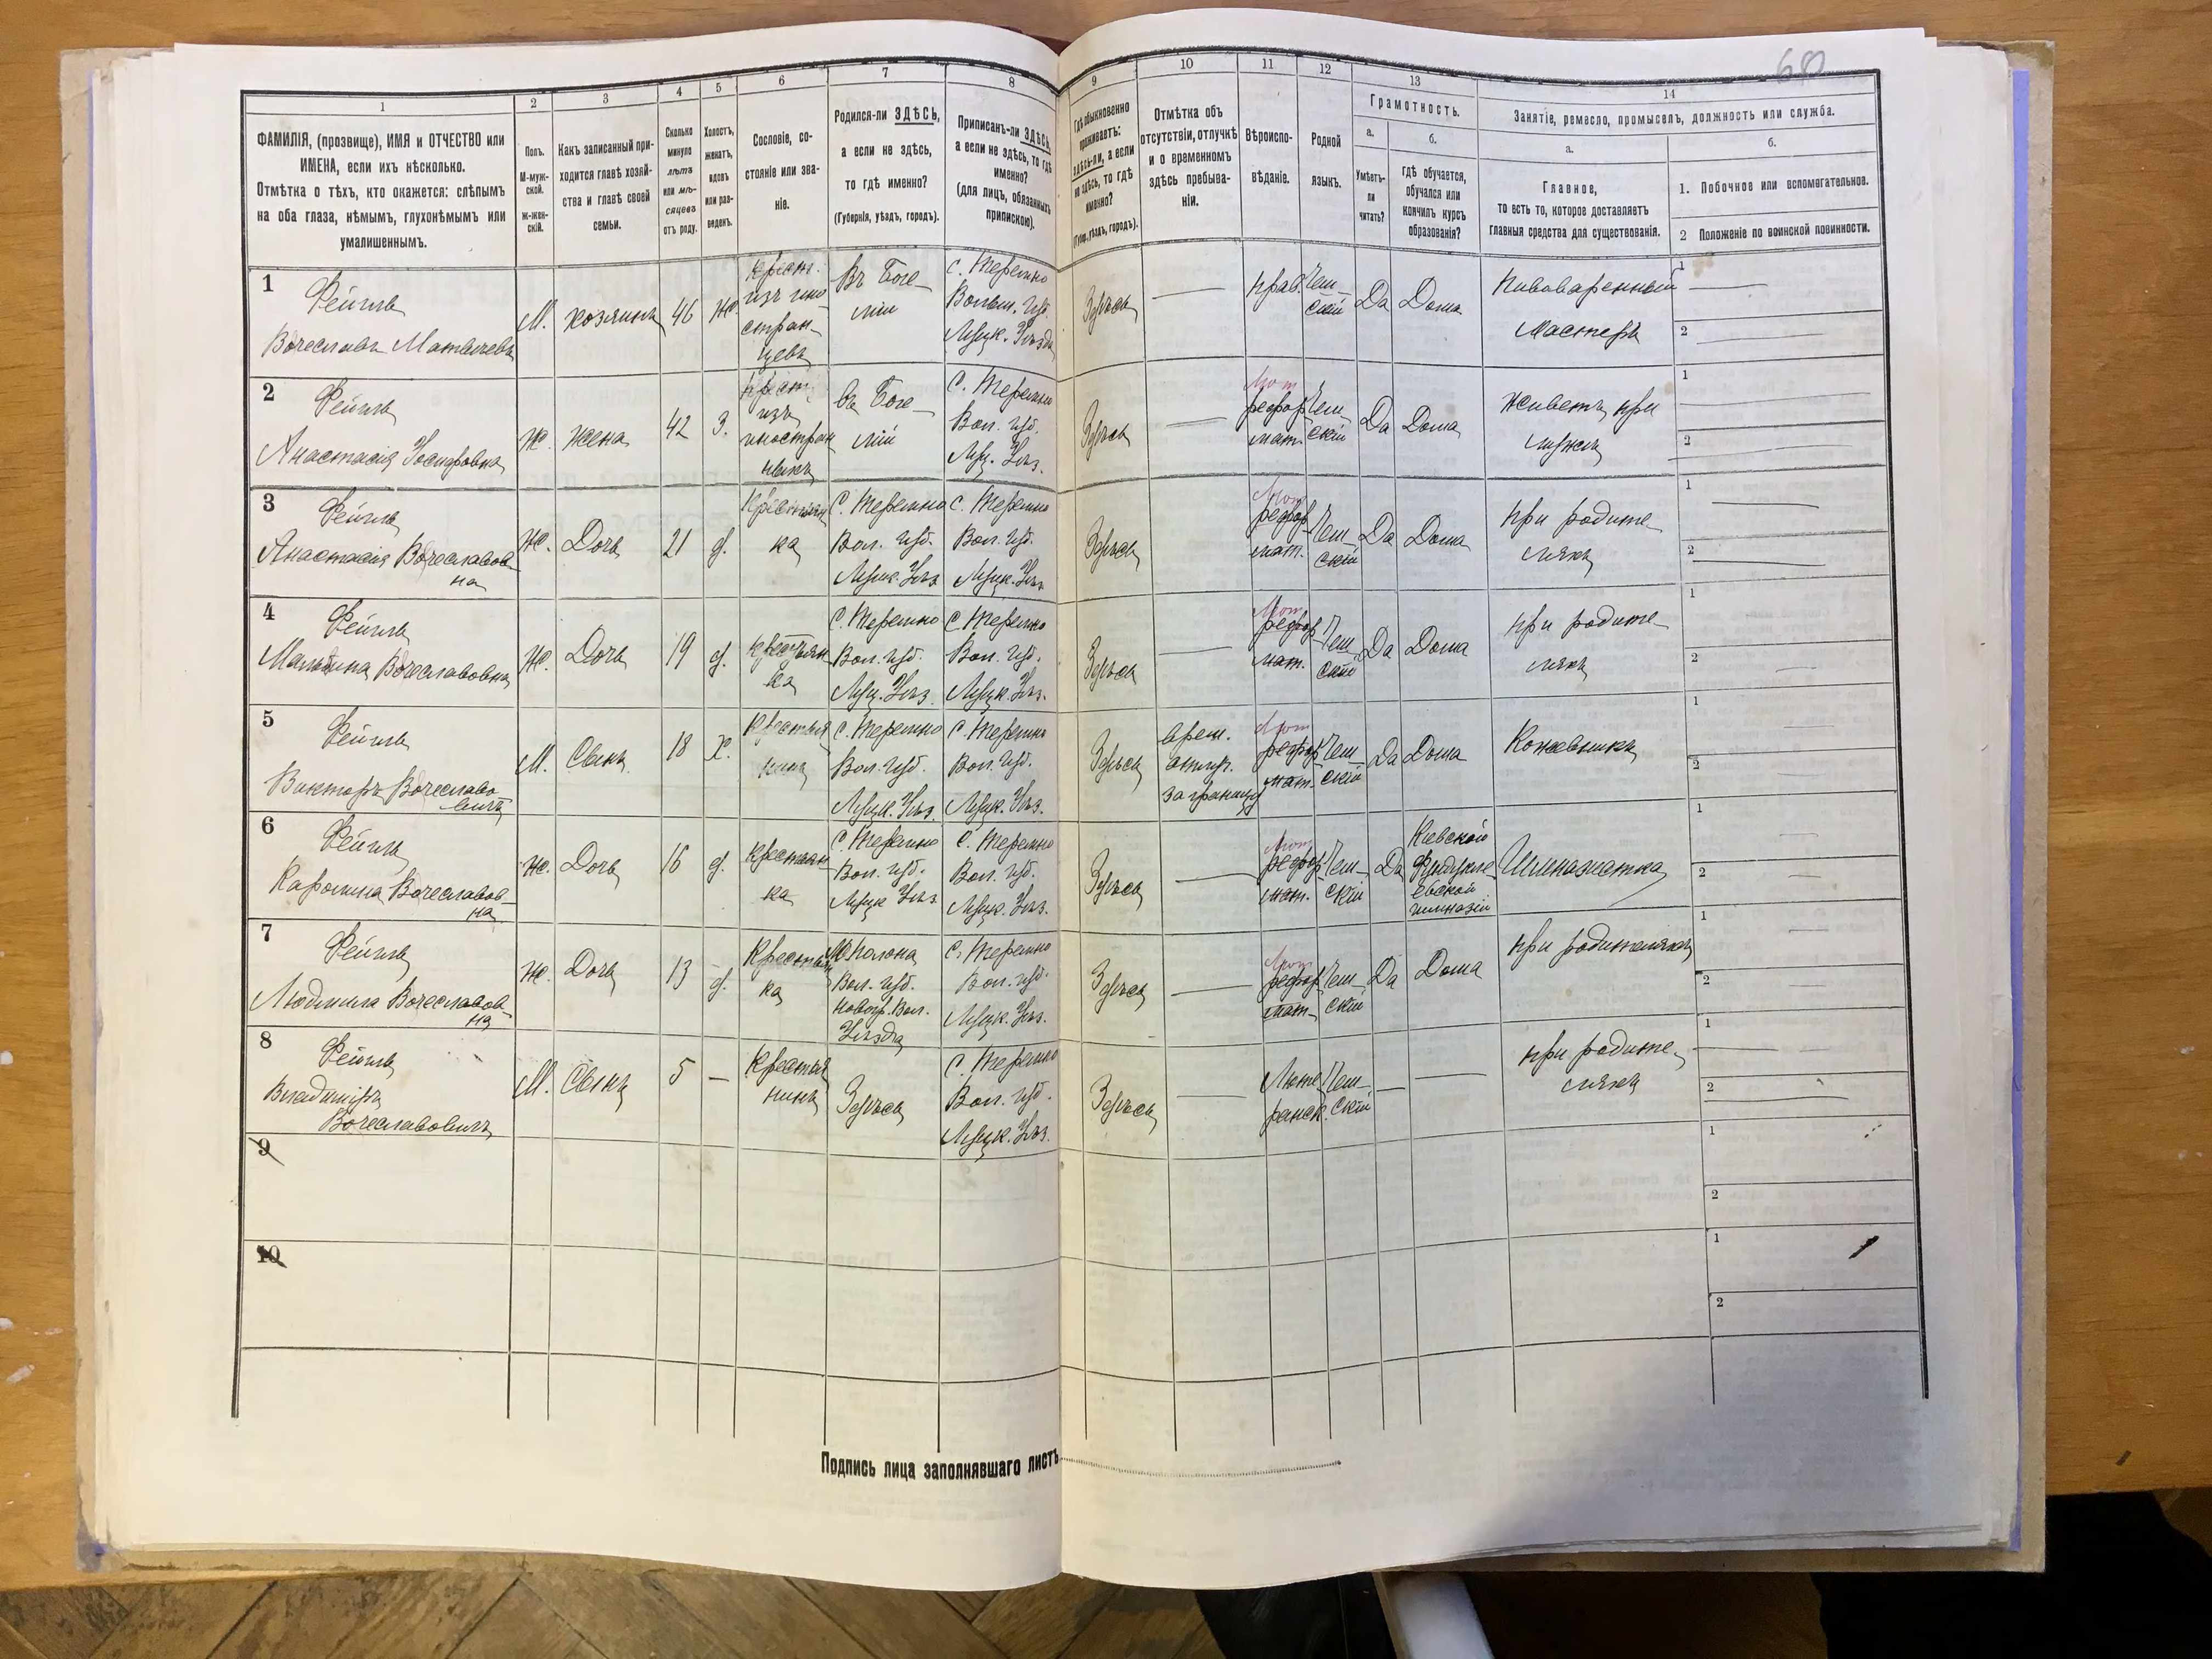 60
1 2 3 4 5 6 7 8 9 10 11 12 13 14
ФАМИЛІЯ, (прозвище), ИМЯ и ОТЧЕСТВО или
ИМЕНА, если ихъ нѣсколько.
Отмѣтка о тѣхъ, кто окажется: слѣпымъ
на оба глаза, нѣмымъ, глухонѣмымъ или
умалишеннымъ.
Полъ.
М-муж-
ской.
ж-жен-
скій.
Какъ записанный при-
ходится главѣ хозяй-
ства и главѣ своей
семьи.
Сколько
минуло
лѣтъ
или мѣ-
сяцевъ
отъ роду.
Холостъ,
женатъ,
вдовъ
или раз-
веденъ.
Сословіе, со-
стояніе или зва-
ніе.
Родился-ли ЗДѢСЬ,
а если не здѣсь,
то гдѣ именно?
(Губернія, уѣздъ, городъ).
Приписанъ-ли ЗДѢСЬ,
а если не здѣсь, то гдѣ
именно?
(для лицъ, обязанныхъ
припискою).
Гдѣ обыкновенно
проживаетъ:
здѣсь-ли, а если
не здѣсь, то гдѣ
именно?
(Губер., уѣздъ, городъ).
Отмѣтка объ
отсутствіи, отлучкѣ
и о временномъ
здѣсь пребыва-
ніи.
Вѣроиспо-
вѣданіе.
Родной
языкъ.
Грамотность.
а.
Умѣетъ-
ли
читать?
б.
гдѣ обучается,
обучался или
кончилъ курсъ
образованія?
Занятіе, ремесло, промыселъ, должность или служба.
а.
Главное,
то есть то, которое доставляетъ
главныя средства для существованія.
б.
1. Побочное или вспомогательное.
2 Положеніе по воинской повинности.
1
Фейгль
Вячеславъ Матвѣевъ
М.
хозяинъ
46
Ж.
Крест.
изъ ино
стран-
цевъ
Въ Боге-
міи
С. Теремно
Волын. губ.
Луцк. Уѣзда
Здѣсь
—
прав.
Чеш-
скій
Да
Дома
Пивоваренный
мастеръ
1 —
2 —
2
Фейгль
Анастасія Іосифовна
Ж.
Жена
42
З.
Крест.
изъ
иностран
Въ Боге-
міи
С. Теремно
Вол. губ.
Луц. Уѣз.
Здѣсь
—
Лют
реформат.
Чеш-
скій
Да
Дома
Живетъ при
мужѣ
1
2 —
3
Фейгль
Анастасія Вячеславов-
на
Ж.
Дочь
21
д.
Крестьян
ка
С. Теремно
Вол. губ.
Луцк. Уѣз
С. Теремно
Вол. губ.
Луцк. Уѣз
Здѣсь
Лют
рефор-
мат.
Чеш-
скій
Да
Дома
при родите-
ляхъ
1 —
2 —
4
Фейгль
Мальвина Вячеславовна
Ж.
Дочь
19
д.
Крестьян
ка
С. Теремно
Вол. губ.
Луц. Уѣз.
С. Теремно
Вол. губ.
Луцк. Уѣз.
Здѣсь
—
Лют
рефор-
мат.
Чеш-
скій
Да
Дома
при родите-
ляхъ
1 —
2 —
5
Фейгль
Викторъ Вячеславо-
вичъ
М.
Сынъ
18
Х.
Крестья
нинъ
С. Теремно
Вол. губ.
Луцк. Уѣз.
С. Теремно
Вол. губ.
Луцк. Уѣз.
Здѣсь
врем.
отлуч.
за границу
Лют
рефор-
мат.
Чеш-
скій
Да
Дома
Кожевникъ
1 —
2 —
6
Фейгль
Каролина Вячеславов-
на
Ж.
Дочь
16
д.
Крестьян-
ка
С. Теремно
Вол. губ.
Луцк Уѣз
С. Теремно
Вол. губ.
Луцк. Уѣз.
Здѣсь
—
Лют
рефор-
мат.
Чеш-
скій
Да
Кіевской
Фундукле
евской
гимназіи
Гимназистка
1 —
2 —
7
Фейгль
Людмила Вячеславов-
на
Ж.
Дочь
13
д.
Крестьян
ка
М Полона
Вол. губ.
Новогр. Вол.
Уѣзда
С. Теремно
Вол. губ.
Луцк. Уѣз.
Здѣсь
—
Лют
рефор-
мат.
Чеш-
скій
Да
Дома
при родителяхъ
1
2 —
8
Фейгль
Владиміръ
Вячеславовичъ
М.
Сынъ
5
—
Крестья
нинъ
Здѣсь
С. Теремно
Вол. губ.
Луцк. Уѣз.
Здѣсь
—
Люте-
ранск.
Чеш-
скій
—
—
при родите-
ляхъ
1 —
2 —
9
1
2
10
1
2
Подпись лица заполнявшаго листъ